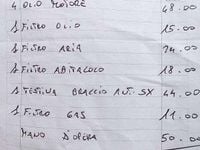 4 OLIO MOTORE 48.00
1 FILTRO OLIO 15.00
1 FILTRO ARIA 24.00
1 FILTRO ABITACOLO 18.00
1 TESTINA BRACCIO ANT. SX 44.00
1 FILTRO GAS 11.00
MANO D'OPERA 50.00